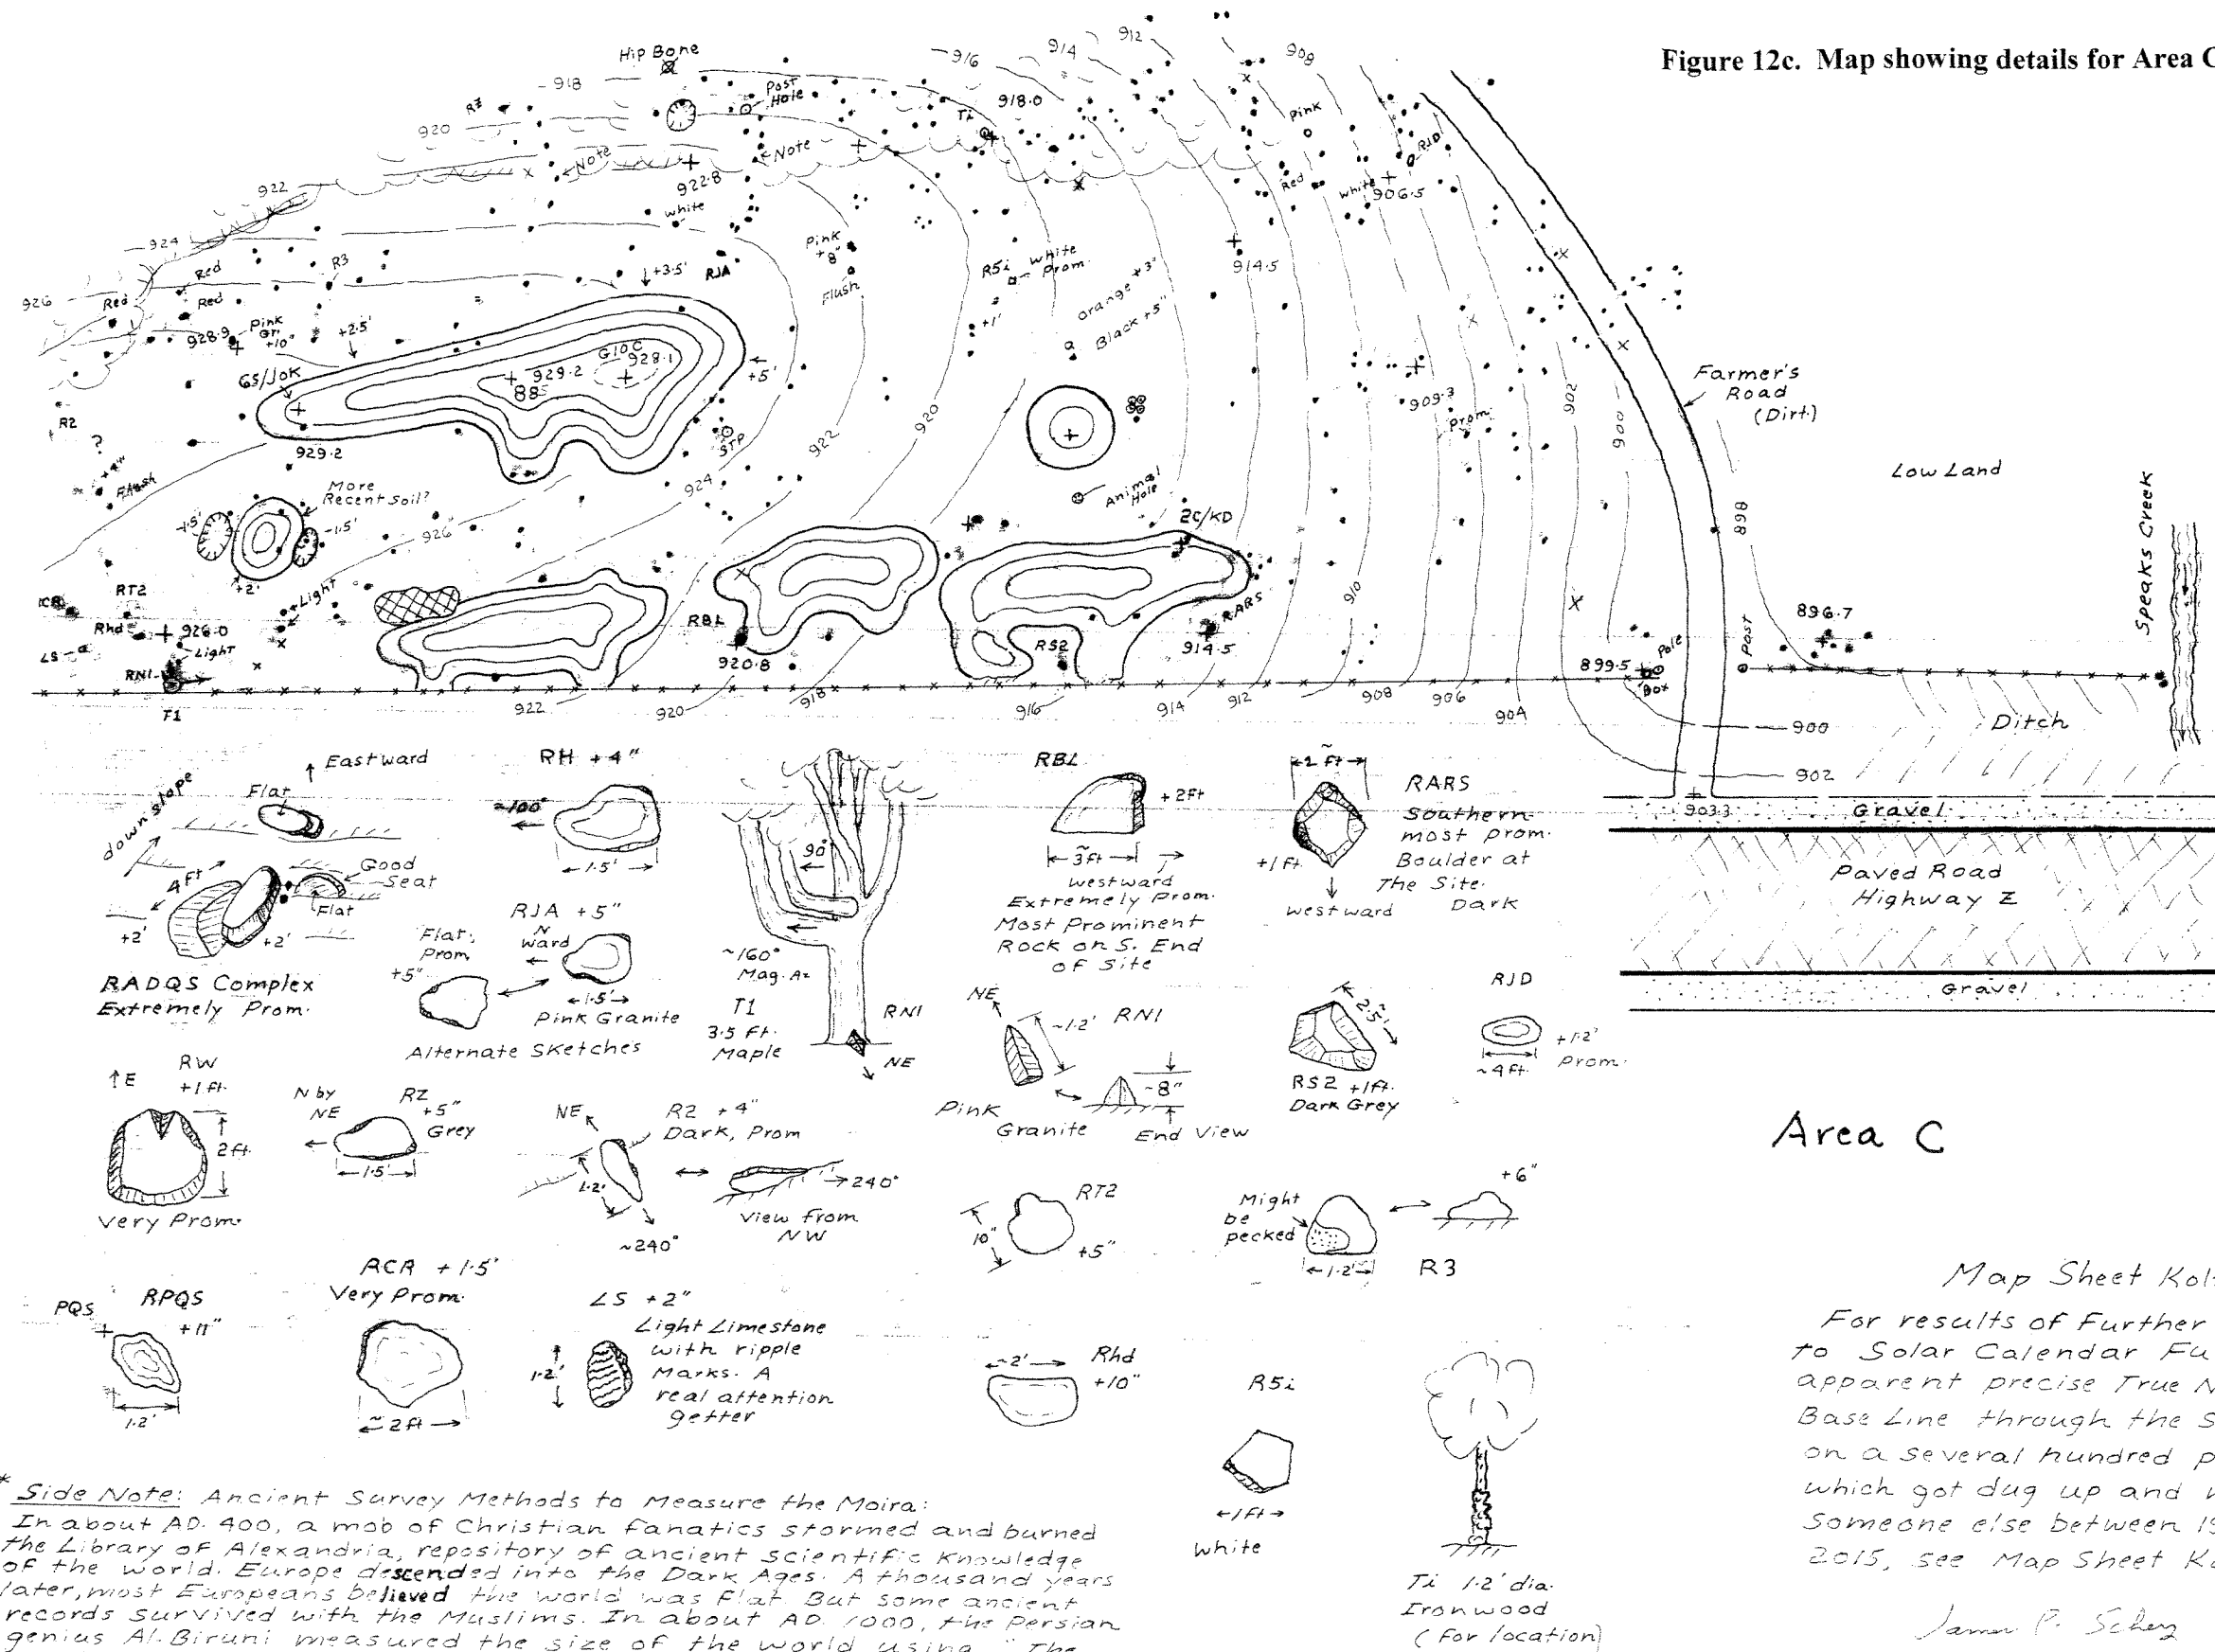 Figure 12c. Map showing details for Area C
Hip Bone
918
916
914
912
908
R3
Post
Hole
918.0
Ti
Pink
RJD
920
Note
Note
922.8
white
Red
white
906.5
922
924
Red
R3
Red
Red
926
+3.5'
RJA
Pink
+8"
Flush
R5i
White
Prom.
+1'
orange +3"
Black +5"
914.5
928.9
Pink
Gr.
+10"
+2.5'
GS/JOK
929.2
88S
G10C
928.1
+5'
929.2
STP
R2
?
Flush
More
Recent Soil?
-1.5'
-1.5'
+2'
924
922
920
926
Animal
Hole
2C/KD
909.3
Prom.
902
900
910
Farmer's
Road
(Dirt)
Low Land
898
Speaks Creek
RT2
Rhd
926.0
LS
Light
Light
RN1
T1
RBL
920.8
RS2
RARS
914.5
899.5
Pole
Box
Post
896.7
922
920
918
916
914
912
908
906
904
900
902
Ditch
903.3
Gravel
Paved Road
Highway Z
Gravel
Eastward
Flat
down slope
4 Ft
Good
Seat
Flat
+2'
+2'
RADQS Complex
Extremely Prom.
RH +4"
~100°
1.5'
RJA +5"
N
Ward
Flat,
Prom
+5"
1.5'
Pink Granite
Alternate Sketches
90°
~160°
Mag. Az
T1
3.5 Ft.
Maple
RN1
NE
RBL
+2Ft
~3ft
westward
Extremely Prom.
Most Prominent
Rock on S. End
of Site
~2 ft
RARS
Southern
most prom.
Boulder at
The Site.
Dark
+1 Ft.
westward
NE
~1.2'
RN1
~8"
Pink
Granite
End View
2.5'
RS2 +1Ft.
Dark Grey
RJD
+1.2'
~4Ft.
Prom.
E
RW
+1 Ft.
2 Ft.
Very Prom.
N by
NE
RZ
+5"
Grey
1.5'
NE
R2 +4"
Dark, Prom
1.2'
~240°
240°
View from
NW
RT2
10"
+5"
Might
be
pecked
+6"
1.2'
R3
Area C
PQS
RPQS
+11"
1.2'
RCR +1.5'
Very Prom.
~2 Ft
LS +2"
Light Limestone
with ripple
Marks. A
real attention
getter
1.2'
~2'
Rhd
+10"
R5i
1 Ft
White
Ti 1.2' dia.
Ironwood
(For location)
Map Sheet Kol
For results of Further
to Solar Calendar Fu
apparent precise True N
Base Line through the S
on a several hundred p
which got dug up and
Someone else between 19
2015, see Map Sheet K
James P. Scherz
* Side Note: Ancient Survey Methods to Measure the Moira:
In about AD. 400, a mob of Christian fanatics stormed and burned
the Library of Alexandria, repository of ancient scientific Knowledge
of the world. Europe descended into the Dark Ages. A thousand years
later, most Europeans believed the world was flat. But some ancient
records survived with the Muslims. In about AD. 1000, the Persian
genius Al-Biruni measured the size of the world using "The